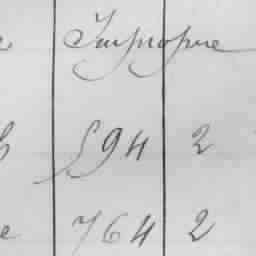 Impropre
594 2
e 764 2